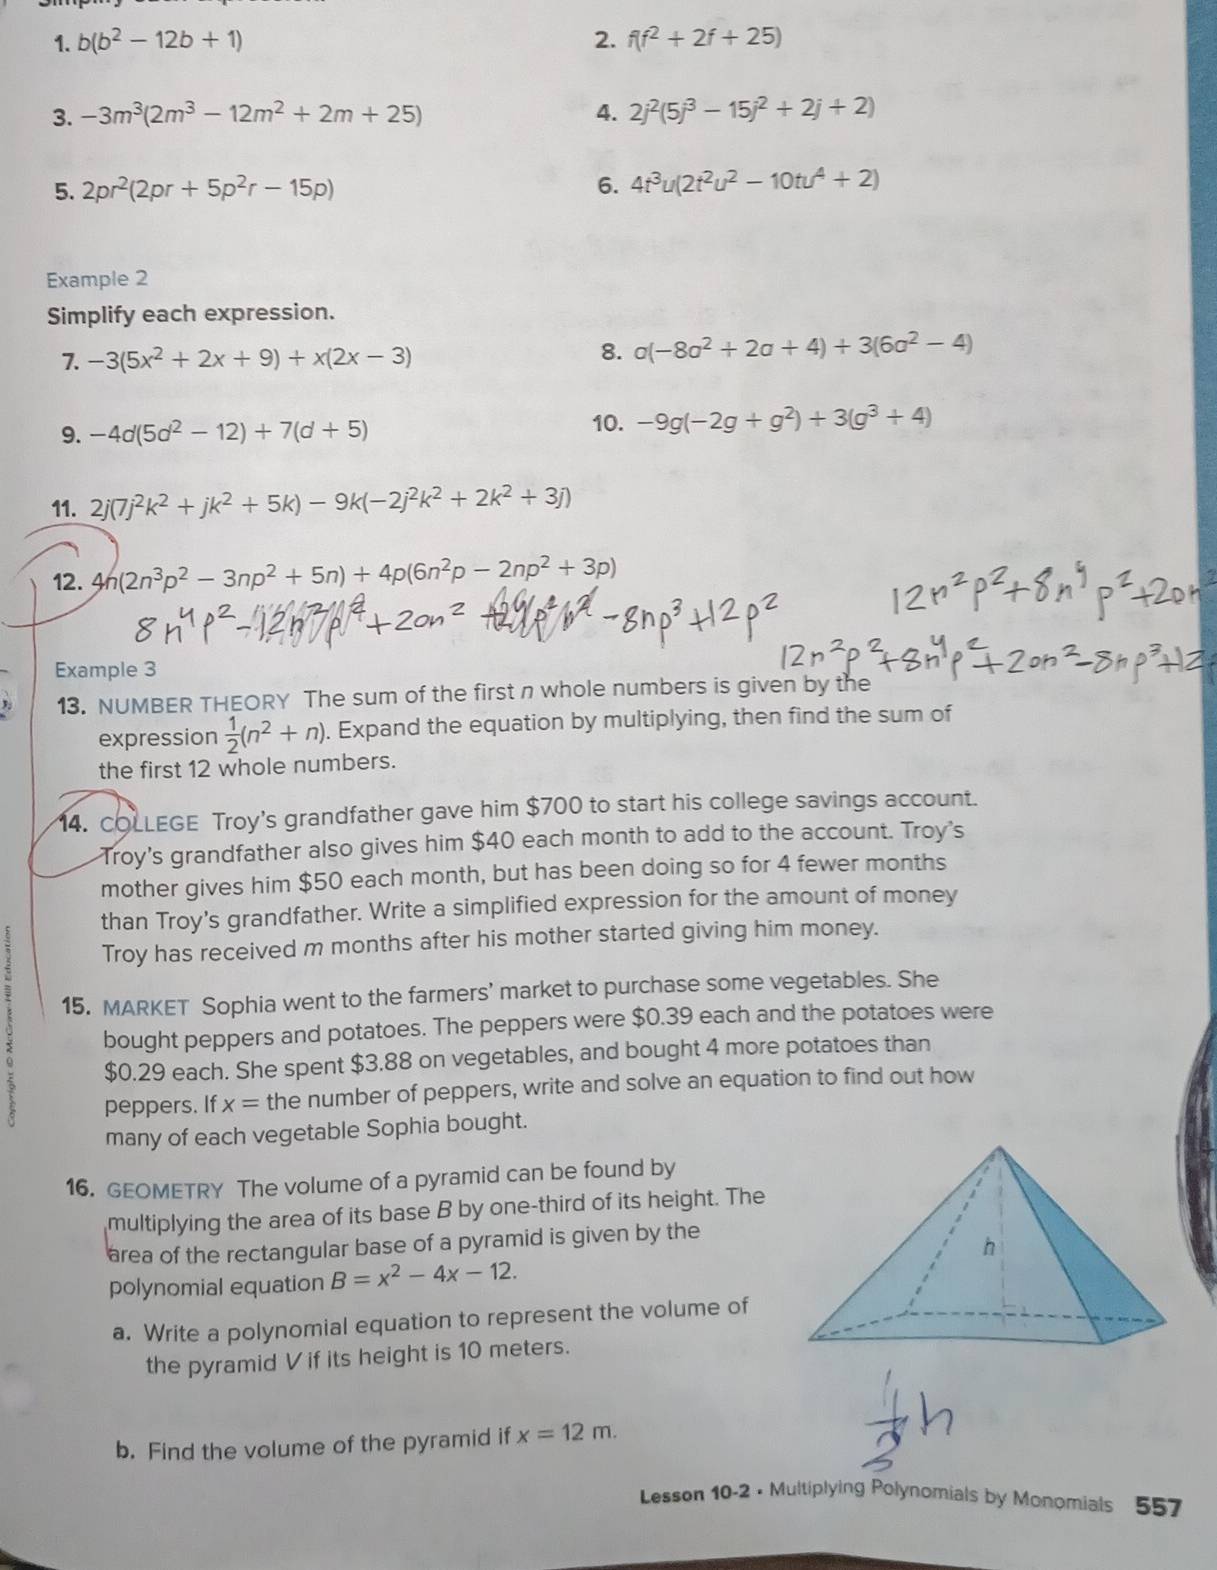 1. b(b² − 12b + 1)
2. f(f² + 2f + 25)
3. −3m³(2m³ − 12m² + 2m + 25)
4. 2j²(5j³ − 15j² + 2j + 2)
5. 2pr²(2pr + 5p²r − 15p)
6. 4t³u(2t²u² − 10tu⁴ + 2)
Example 2
Simplify each expression.
7. −3(5x² + 2x + 9) + x(2x − 3)
8. a(−8a² + 2a + 4) + 3(6a² − 4)
9. −4d(5d² − 12) + 7(d + 5)
10. −9g(−2g + g²) + 3(g³ + 4)
11. 2j(7j²k² + jk² + 5k) − 9k(−2j²k² + 2k² + 3j)
12. 4n(2n³p² − 3np² + 5n) + 4p(6n²p − 2np² + 3p)
12n²p² + 8n⁴p² + 20n²
8n⁴p² − 12n²p² + 20n² + 24p²n² − 8np³ + 12p²
12n²p² + 8n⁴p² + 20n² − 8np³ + 12
Example 3
13. NUMBER THEORY The sum of the first n whole numbers is given by the
expression 1/2(n² + n). Expand the equation by multiplying, then find the sum of
the first 12 whole numbers.
14. COLLEGE Troy's grandfather gave him $700 to start his college savings account.
Troy's grandfather also gives him $40 each month to add to the account. Troy's
mother gives him $50 each month, but has been doing so for 4 fewer months
than Troy's grandfather. Write a simplified expression for the amount of money
Troy has received m months after his mother started giving him money.
15. MARKET Sophia went to the farmers' market to purchase some vegetables. She
bought peppers and potatoes. The peppers were $0.39 each and the potatoes were
$0.29 each. She spent $3.88 on vegetables, and bought 4 more potatoes than
peppers. If x = the number of peppers, write and solve an equation to find out how
many of each vegetable Sophia bought.
16. GEOMETRY The volume of a pyramid can be found by
multiplying the area of its base B by one-third of its height. The
area of the rectangular base of a pyramid is given by the
polynomial equation B = x² − 4x − 12.
h
a. Write a polynomial equation to represent the volume of
the pyramid V if its height is 10 meters.
1/3 h
b. Find the volume of the pyramid if x = 12 m.
Lesson 10-2 • Multiplying Polynomials by Monomials 557
Copyright © McGraw-Hill Education